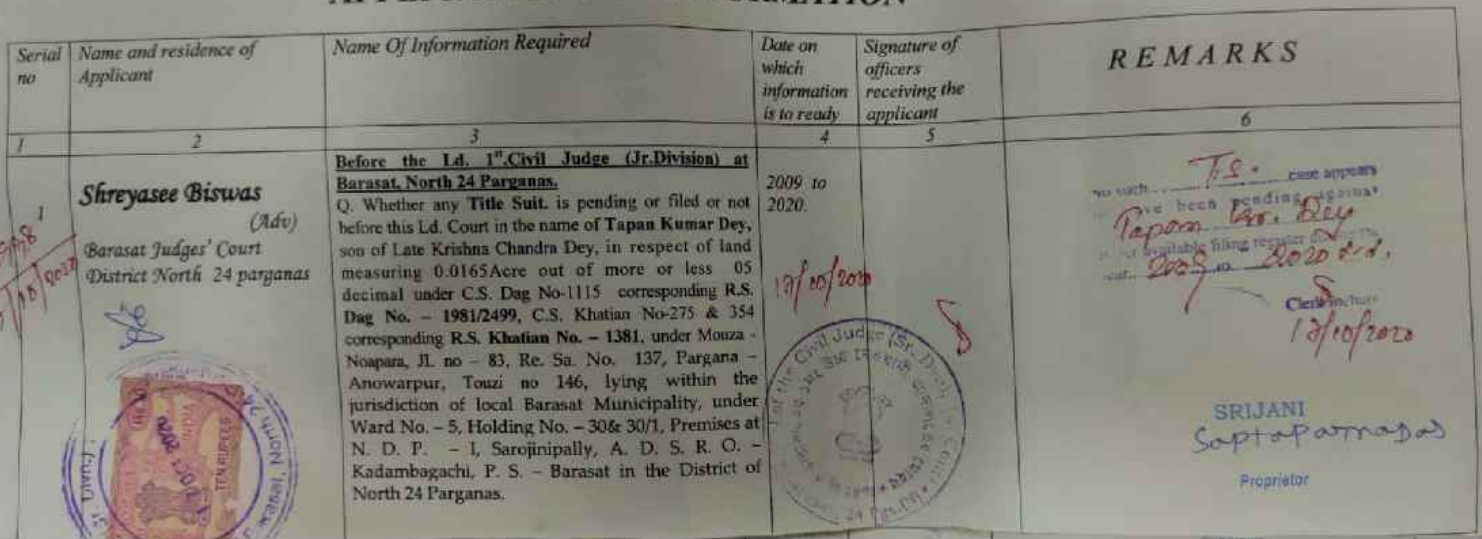 Serial no
Name and residence of Applicant
Name Of Information Required
Date on which information is to ready
Signature of officers receiving the applicant
REMARKS
1
2
3
4
5
6
1
Shreyasee Biswas
(Adv)
Barasat Judges' Court
District North 24 parganas
Before the Ld. 1st.Civil Judge (Jr.Division) at
Barasat, North 24 Parganas.
Q. Whether any Title Suit. is pending or filed or not
before this Ld. Court in the name of Tapan Kumar Dey,
son of Late Krishna Chandra Dey, in respect of land
measuring 0.0165Acre out of more or less 05
decimal under C.S. Dag No-1115 corresponding R.S.
Dag No. – 1981/2499, C.S. Khatian No-275 & 354
corresponding R.S. Khatian No. – 1381, under Mouza -
Noapara, JL no – 83, Re. Sa. No. 137, Pargana –
Anowarpur, Touzi no 146, lying within the
jurisdiction of local Barasat Municipality, under
Ward No. – 5, Holding No. – 30& 30/1, Premises at
N. D. P. – I, Sarojinipally, A. D. S. R. O. –
Kadambagachi, P. S. – Barasat in the District of
North 24 Parganas.
2009 to
2020.
12/10/2020
No such T.S. case appears
have been pending against
Tapan Kr. Dey
available filing register
2009 to 2020
Clerk
12/10/2020
SRIJANI
Saptaparnadas
Proprietor
TEN RUPEES
INDIA
of the Civil Judge (Sr. Divn)